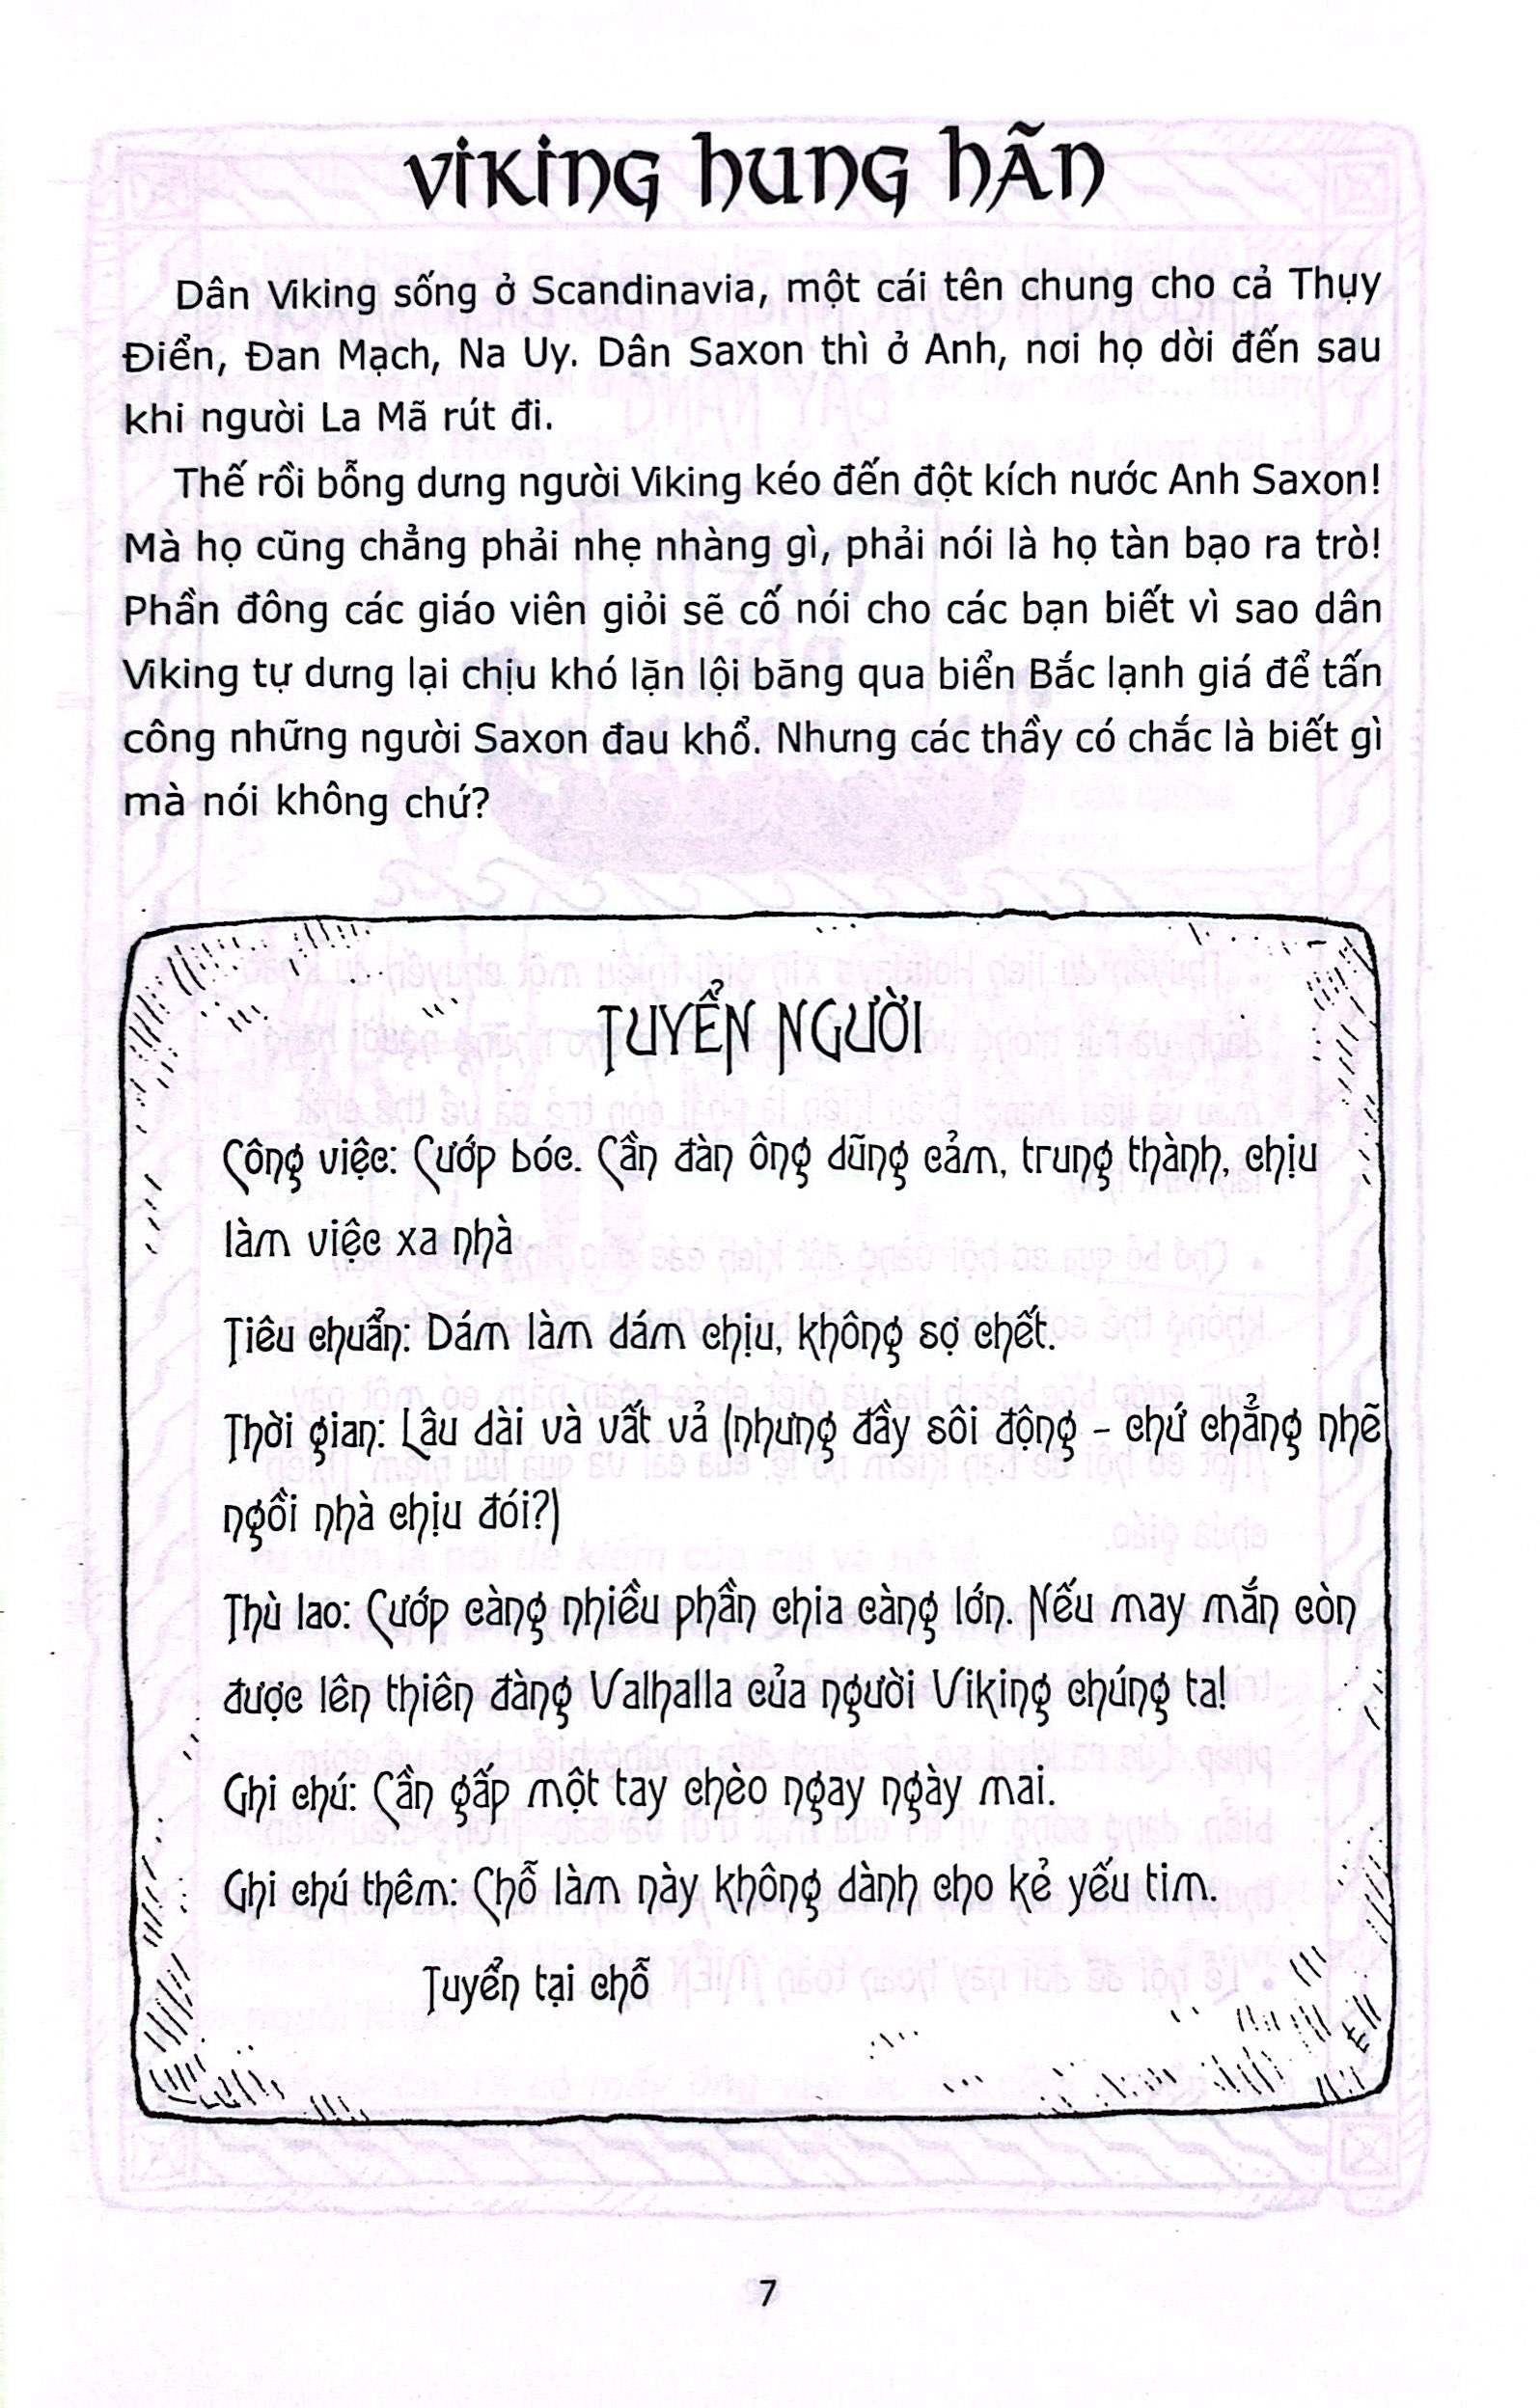 VIKING HUNG HÃN
Dân Viking sống ở Scandinavia, một cái tên chung cho cả Thụy
Điển, Đan Mạch, Na Uy. Dân Saxon thì ở Anh, nơi họ dời đến sau
khi người La Mã rút đi.
Thế rồi bỗng dưng người Viking kéo đến đột kích nước Anh Saxon!
Mà họ cũng chẳng phải nhẹ nhàng gì, phải nói là họ tàn bạo ra trò!
Phần đông các giáo viên giỏi sẽ cố nói cho các bạn biết vì sao dân
Viking tự dưng lại chịu khó lặn lội băng qua biển Bắc lạnh giá để tấn
công những người Saxon đau khổ. Nhưng các thầy có chắc là biết gì
mà nói không chứ?
TUYỂN NGƯỜI
Công việc: Cướp bóc. Cần đàn ông dũng cảm, trung thành, chịu
làm việc xa nhà
Tiêu chuẩn: Dám làm dám chịu, không sợ chết.
Thời gian: Lâu dài và vất vả (nhưng đầy sôi động - chứ chẳng nhẽ
ngồi nhà chịu đói?)
Thù lao: Cướp càng nhiều phần chia càng lớn. Nếu may mắn còn
được lên thiên đàng Valhalla của người Viking chúng ta!
Ghi chú: Cần gấp một tay chèo ngay ngày mai.
Ghi chú thêm: Chỗ làm này không dành cho kẻ yếu tim.
Tuyển tại chỗ
7